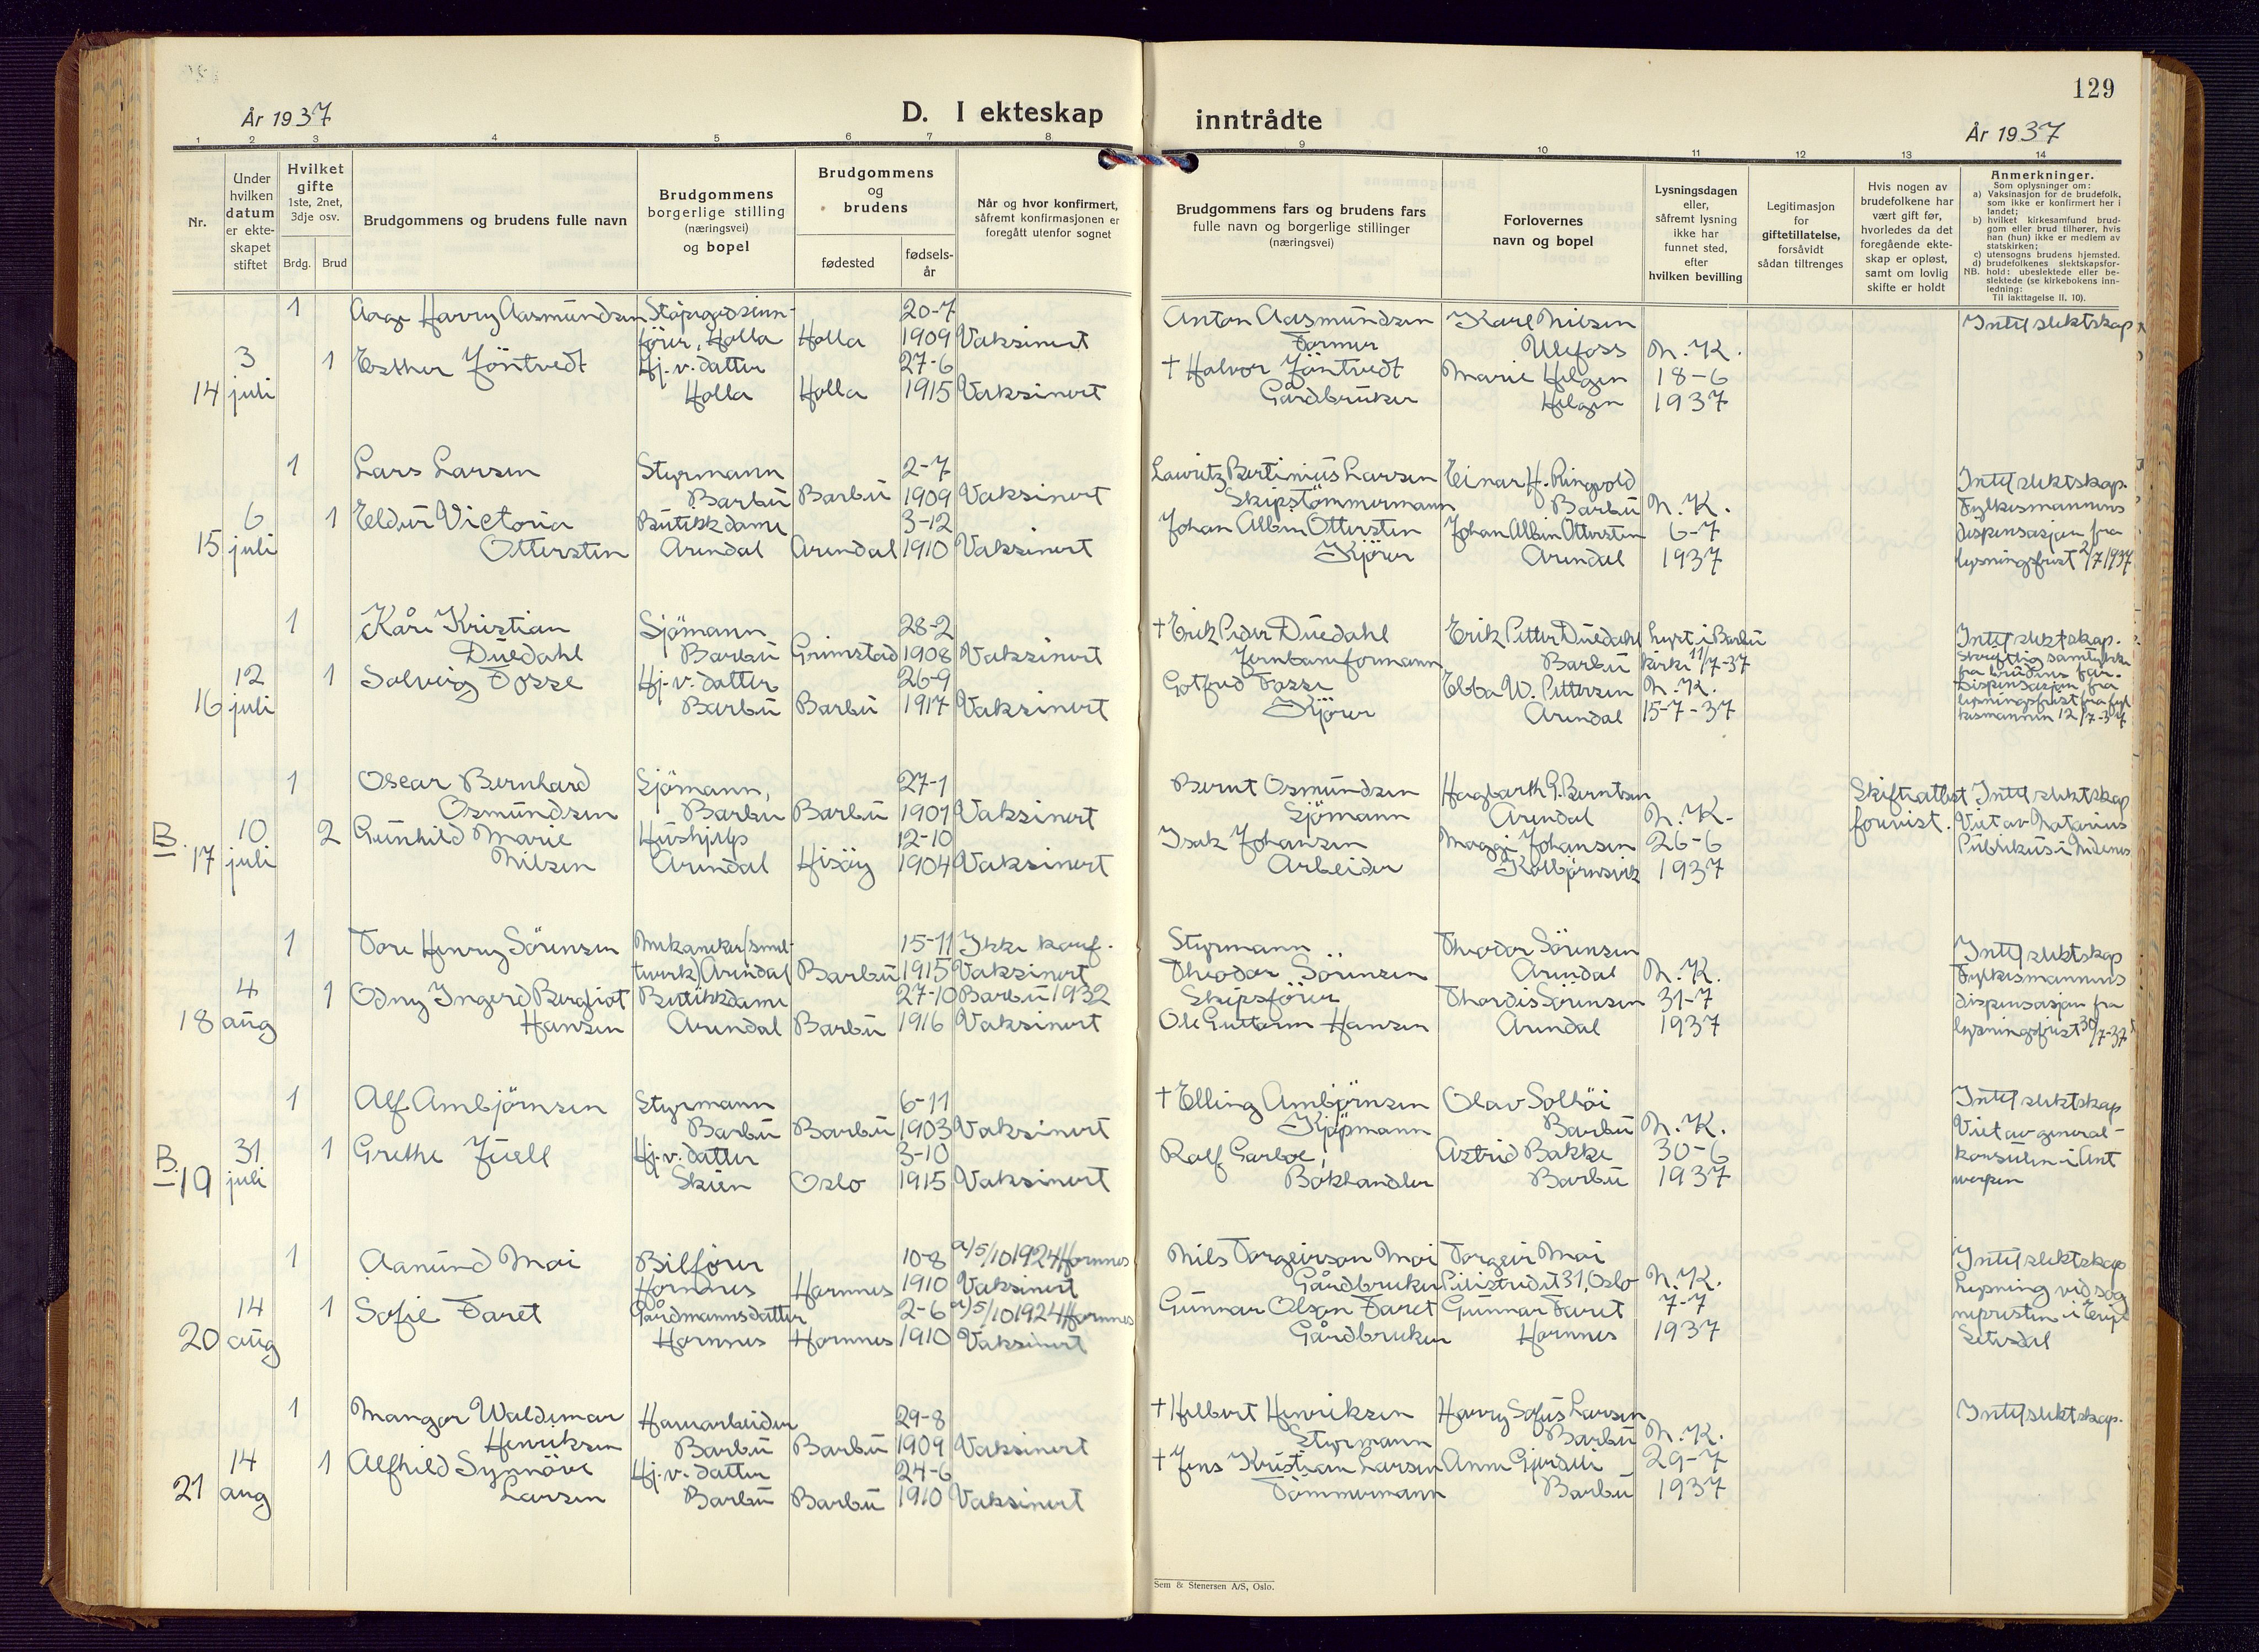 129
År 1937
D. I ekteskap
inntrådte
År 1937
1
2
3
4
5
6
7
8
9
10
11
12
13
14
Nr.
Under
hvilken
datum
er ekte-
skapet
stiftet
Hvilket
gifte
1ste, 2net,
3dje osv.
Brdg.
Brud
Brudgommens og brudens fulle navn
Brudgommens
borgerlige stilling
(næringsvei)
og bopel
Brudgommens
og
brudens
fødested
fødsels-
år
Når og hvor konfirmert,
såfremt konfirmasjonen er
foregått utenfor sognet
Brudgommens fars og brudens fars
fulle navn og borgerlige stillinger
(næringsvei)
Forlovernes
navn og bopel
Lysningsdagen
eller,
såfremt lysning
ikke har
funnet sted,
efter
hvilken bevilling
Legitimasjon
for
giftetillatelse,
forsåvidt
sådan tiltrenges
Hvis nogen av
brudefolkene har
vært gift før,
hvorledes da det
foregående ekte-
skap er opløst,
samt om lovlig
skifte er holdt
Anmerkninger.
Som oplysninger om:
a) Vaksinasjon for de brudefolk,
som ikke er konfirmert her i
landet;
b) hvilket kirkesamfund brud-
gom eller brud tilhører, hvis
han (hun) ikke er medlem av
statskirken;
c) utensogns brudens hjemsted.
d) brudefolkenes slektskapsfor-
NB. hold: ubeslektede eller be-
slektede (se kirkebokens inn-
ledning:
Til iakttagelse II. 10).
1 Aage Harry Aasmundsen 20-7 Anton Aasmundsen Karl Nilsen Intet slektskap
fører, Holla Holla 1909 Vaksinert Ulefoss N.K.
3 1 Esther Jöntvedt Hj.v. datter 27-6 † Halvor Jöntvedt Marie Helgen 18-6
14 juli Holla Holla 1915 Vaksinert Gårdbruker Helgen 1937
1 Lars Larsen Styrmann 2-7 Lauritz Bertinius Larsen Einar H. Ringvold Intet slektskap.
Barbu Barbu 1909 Vaksinert Skipstömmermann Barbu N.K. Fylkesmannens
6 1 Eldur Victoria Butikkdame 3-12 Johan Albin Ottersten Johan Albin Ottersten 6-7 dispensasjon fra
15 juli Ottersten Arendal Arendal 1910 Vaksinert Kjörer Arendal 1937 lysningsfrist 2/7 1937
1 Kåre Kristian Sjömann 28-2 † Erik Peder Duedahl Erik Petter Duedahl Lyst i Barbu Intet slektskap.
Duedahl Barbu Grimstad 1908 Vaksinert Jernbaneformann Barbu kirke 11/7-37 Skriftlig samtykke
fra brudens far.
12 1 Solveig Fosse Hj.v. datter 26-9 Gotfred Fosse Ebba W. Pettersen N.K. Dispensasjon fra
16 juli Barbu Barbu 1917 Vaksinert Kjörer Arendal 15-7-37 lysningsfrist fra fyl
kesmannen 12/7-37
1 Oscar Bernhard Sjömann, 27-1 Bernt Osmundsen Hagbarth G. Berntsen Skifteattest Intet slektskap
Osmundsen Barbu Barbu 1901 Vaksinert Sjömann Arendal N.K. forevist. Viet av Notarius
B. 10 2 Gunhild Marie Hushjelp 12-10 Isak Johansen Maggi Johansen 26-6 Publikus i Nedenes
17 juli Nilsen Arendal Hisöy 1904 Vaksinert Arbeider Kolbjörnsvik 1937
1 Tore Henry Sörensen Mekaniker (smel- 15-11 Ikke konf. Styrmann Theodor Sörensen Intet slektskap
tverk) Arendal Barbu 1915 Vaksinert Theodor Sörensen Arendal N.K. Fylkesmannens
4 1 Odny Ingerd Bergliot Butikkdame 27-10 Barbu 1932 Skipsförer Thordis Sörensen 31-7 dispensasjon fra
18 aug Hansen Arendal Barbu 1916 Vaksinert Ole Guttorm Hansen Arendal 1937 lysningsfrist 30/7-37
1 Alf Ambjörnsen Styrmann 6-11 † Elling Ambjörnsen Olav Solhöi Intet slektskap
Barbu Barbu 1903 Vaksinert Kjöpmann Barbu N.K. Viet av general-
B. 31 1 Grethe Juell Hj.v. datter 3-10 Ralf Garboe, Astrid Bakke 30-6 konsulen i Ant
19 juli Skien Oslo 1915 Vaksinert Bokhandler Barbu 1937 werpen
1 Aanund Moi Bilförer 10-8 a/5/10 1924 Hornnes Nils Torgeirson Moi Torgeir Moi Intet slektskap
Hornnes Hornnes 1910 Vaksinert Gårdbruker 31, Oslo N.K. Lysning ved sog
14 1 Sofie Faret Gårdmannsdatter 2-6 a/5/10 1924 Hornnes Gunnar Olson Faret Gunnar Faret 7-7 nepresten i
20 aug Hornnes Hornnes 1910 Vaksinert Gårdbruker Hornnes 1937 Setesdal
1 Mangor Waldemar Havnarbeider 29-8 † Helbert Henriksen Harry Sofus Larsen Intet slektskap.
Henriksen Barbu Barbu 1909 Vaksinert Styrmann Barbu N.K.
14 1 Alfhild Synnöve Hj.v. datter 24-6 † Jens Kristian Larsen Anne 29-7
21 aug Larsen Barbu Barbu 1910 Vaksinert Tömmermann Barbu 1937
Sem & Stenersen A/S, Oslo.